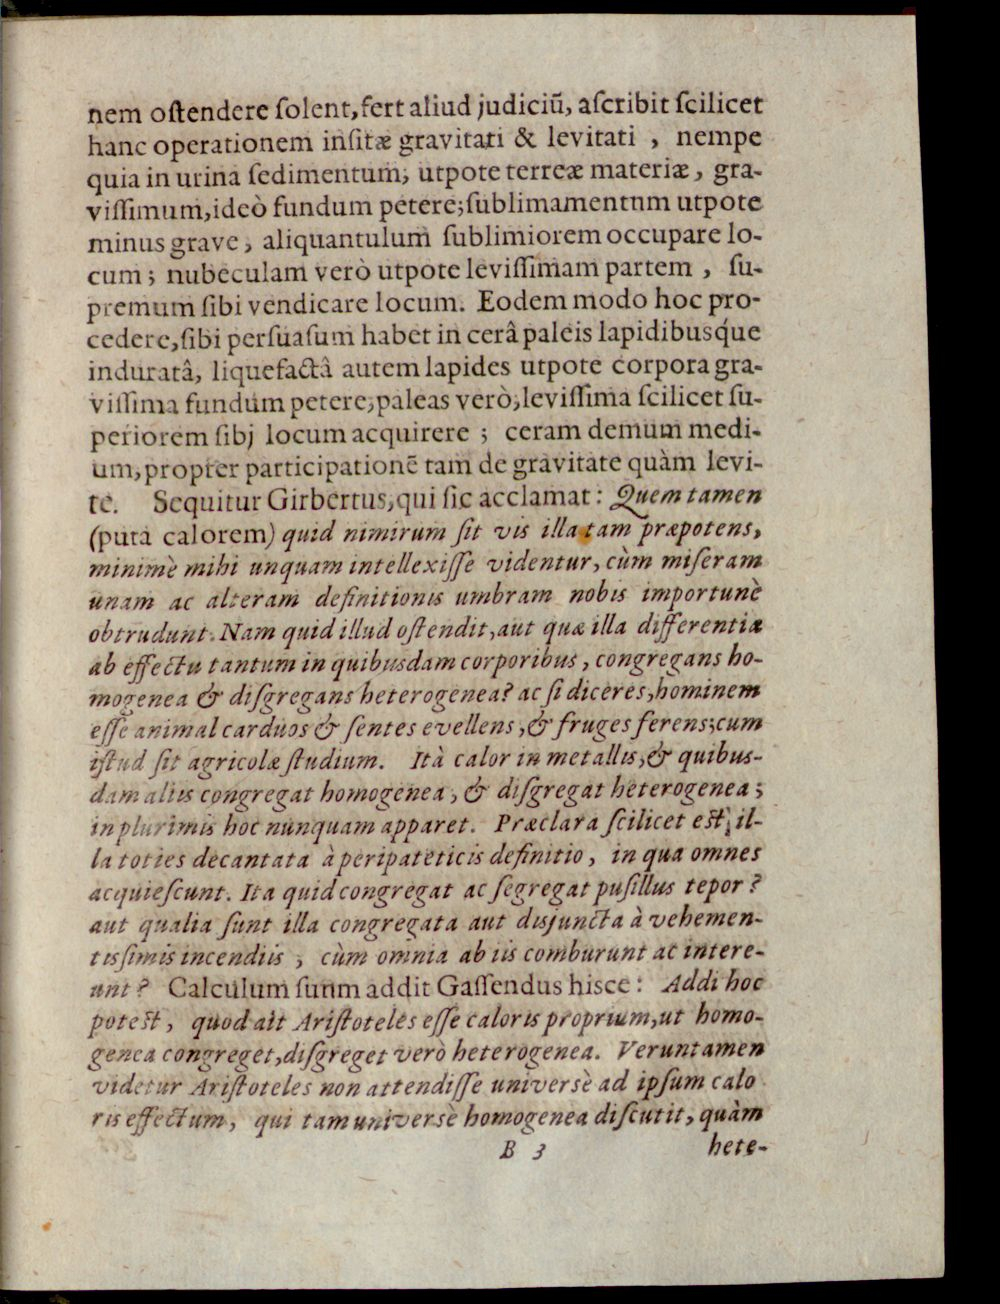 nem oſtendere ſolent, fert aliud judiciū, aſcribit ſcilicet
hanc operationem inſitæ gravitati & levitati , nempe
quia in urina ſedimentum, utpote terreæ materiæ, gra-
viſſimum, ideò fundum petere; ſublimamentnm utpote
minus grave, aliquantulum ſublimiorem occupare lo-
cum ; nubeculam verò utpote leviſſimam partem , ſu-
premum ſibi vendicare locum. Eodem modo hoc pro-
cedere, ſibi perſuaſum habet in cerâ paleis lapidibusq́ue
induratâ, liquefactâ autem lapides utpote corpora gra-
viſſima fundum petere, paleas verò, leviſſima ſcilicet ſu-
periorem ſibj locum acquirere ; ceram demum medi-
um, propter participationē tam de gravitate quàm levi-
te. Sequitur Girbertus, qui ſic acclamat: Quem tamen
(puta calorem) quid nimirum ſit vis illa tam præpotens,
minimè mihi unquam intellexiſſe videntur, cùm miſeram
unam ac alteram definitionis umbram nobis importunè
obtrudunt. Nam quid illud oſtendit, aut quæ illa differentiæ
ab effectu tantum in quibusdam corporibus, congregans ho-
mogenea & diſgregans heterogenea? ac ſi diceres, hominem
eſſe animal carduos & ſentes evellens, & fruges ferens; cum
iſtud ſit agricolæ ſtudium. Ità calor in metallis, & quibus-
dam aliis congregat homogenea, & diſgregat heterogenea ;
in plurimis hoc nunquam apparet. Præclara ſcilicet eſt, il-
la toties decantata à peripateticis definitio, in qua omnes
acquieſcunt. Ita quid congregat ac ſegregat puſillus tepor ?
aut qualia ſunt illa congregata aut disjuncta à vehemen-
tisſimis incendiis , cùm omnia ab iis comburunt ac intere-
unt ? Calculum ſuum addit Gaſſendus hisce: Addi hoc
poteſt, quod ait Ariſtoteles eſſe caloris proprium, ut homo-
genea congreget, diſgreget verò heterogenea. Veruntamen
videtur Ariſtoteles non attendiſſe universè ad ipſum calo
ris effectum, qui tam universè homogenea diſcutit, quàm
B 3 hete-